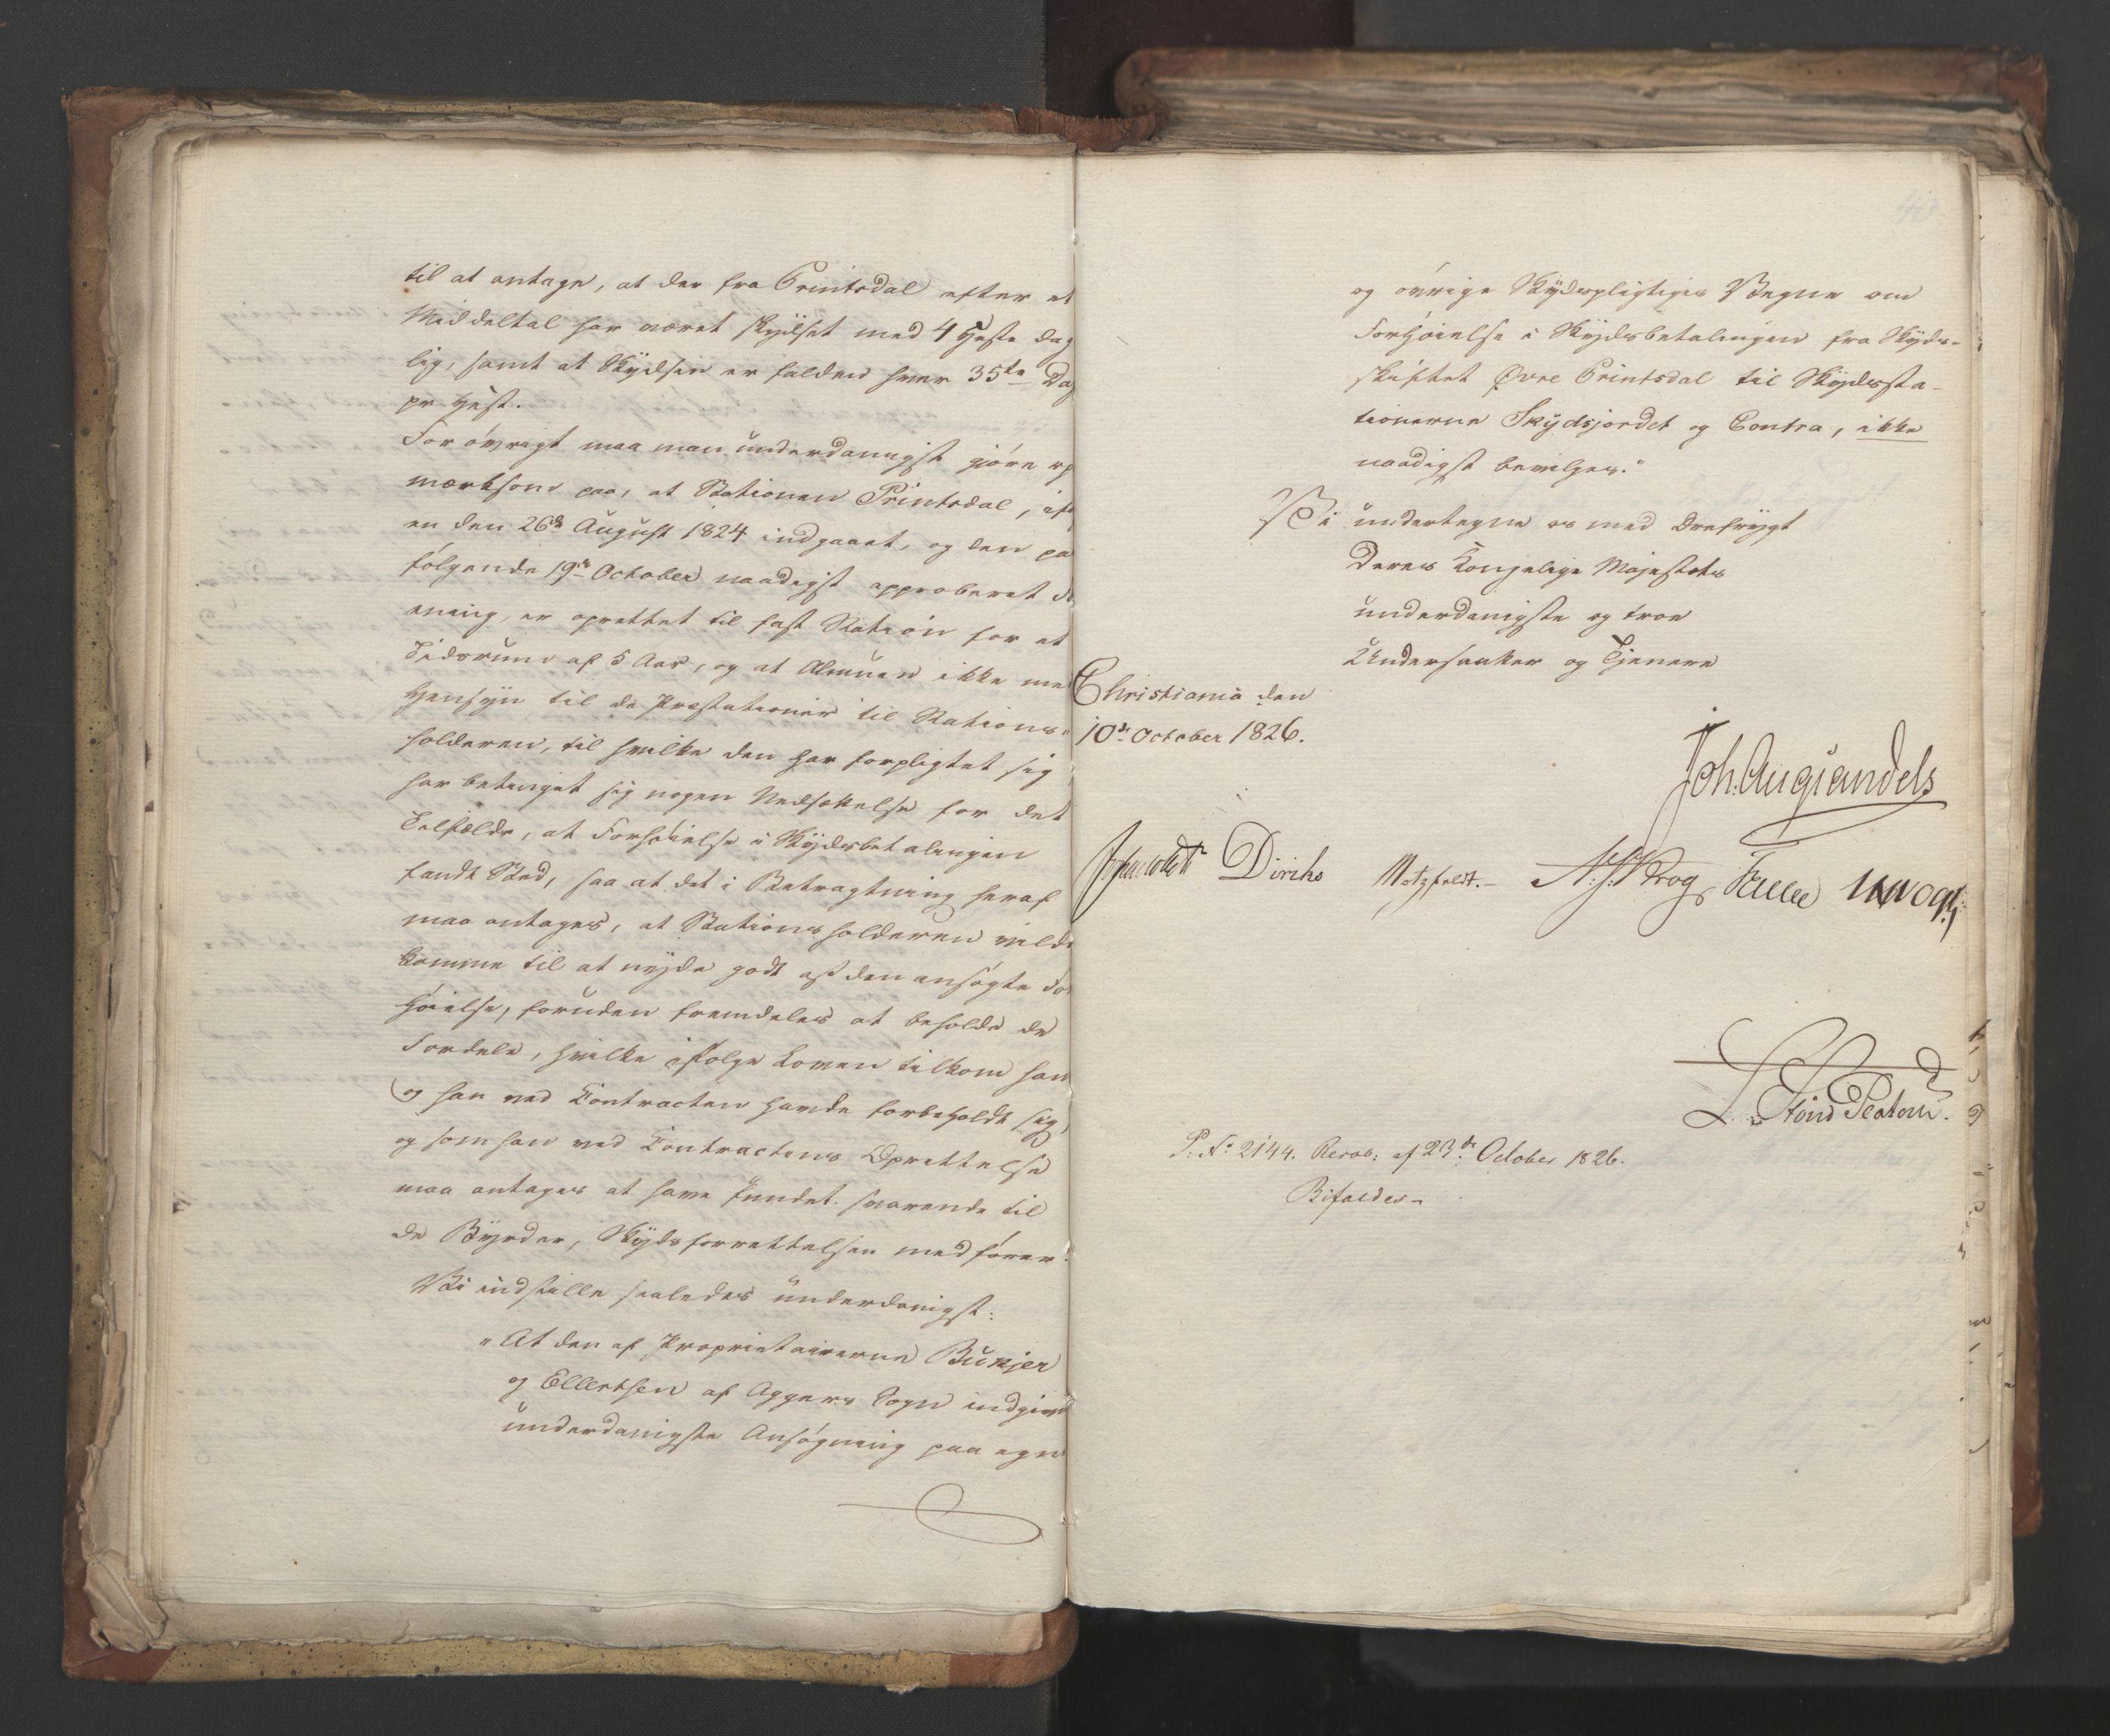 til at antage, at der fra Printsdal efter et
Middeltal har været skydset med 4 Heste dag
lig, samt at Skydsen er falden hver 35te Dag
pr Hest.
For øvrigt maa man underdanigst gjøre op
mærksom paa, at Stationen Printsdal, if
en den 26de August 1824 indgaaet, og den pa
følgende 19de October naadigst approberet Fo
ening, er oprettet til fast Station for et
Tidsrum af 5 Aar, og at Almuen ikke med
Hensyn til de Præstationer til Stations-
holderen, til hvilke den har forpligtet sig
har betinget sig nogen Nedsættelse for det
Tilfælde, at Forhøielse i Skydsbetalingen
fandt Sted, saa at det i Betragtning heraf
maa antages, at Stationsholderen vilde
komme til at nyde godt af den ansøgte For
høielse, foruden fremdeles at beholde de
Fordele, hvilke ifølge Loven tilkom ham
og han ved Contracten havde forbeholdt sig,
og som han ved Contractens Oprettelse
maa antages at have fundet svarende til
de Byrder, Skydsforrettelsen medfører.
Vi indstille saaledes underdanigst:
"At den af Proprietairerne Bunjer
og Ellertsen af Aggers Sogn indgivne
underdanigste Ansøgning paa egne
og øvrige Skydspligtiges Vegne om
Forhøielse i Skydsbetalingen fra Skyds-
skiftet Øvre Printsdal til Skydssta-
tionerne Skydsjordet og Contra, ikke
naadigst bevilges."
Vi undertegne os med Ærefrygt
Deres Kongelige Majestæts
underdanigste og troe
Undersaatter og Tjenere
Christiania den
10de October 1826.
Joh: Aug: Sandels
Diriks Motzfeldt.- Krog Fasting
P: No 2144. Resol: af 23de October 1826.
Bifaldes-